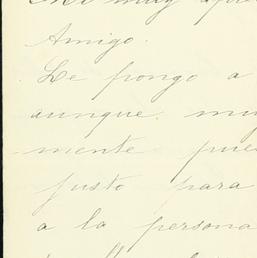 Mi muy apre
Amigo.
Le pongo a
aunque muy
mente pue
justo para
a la persona